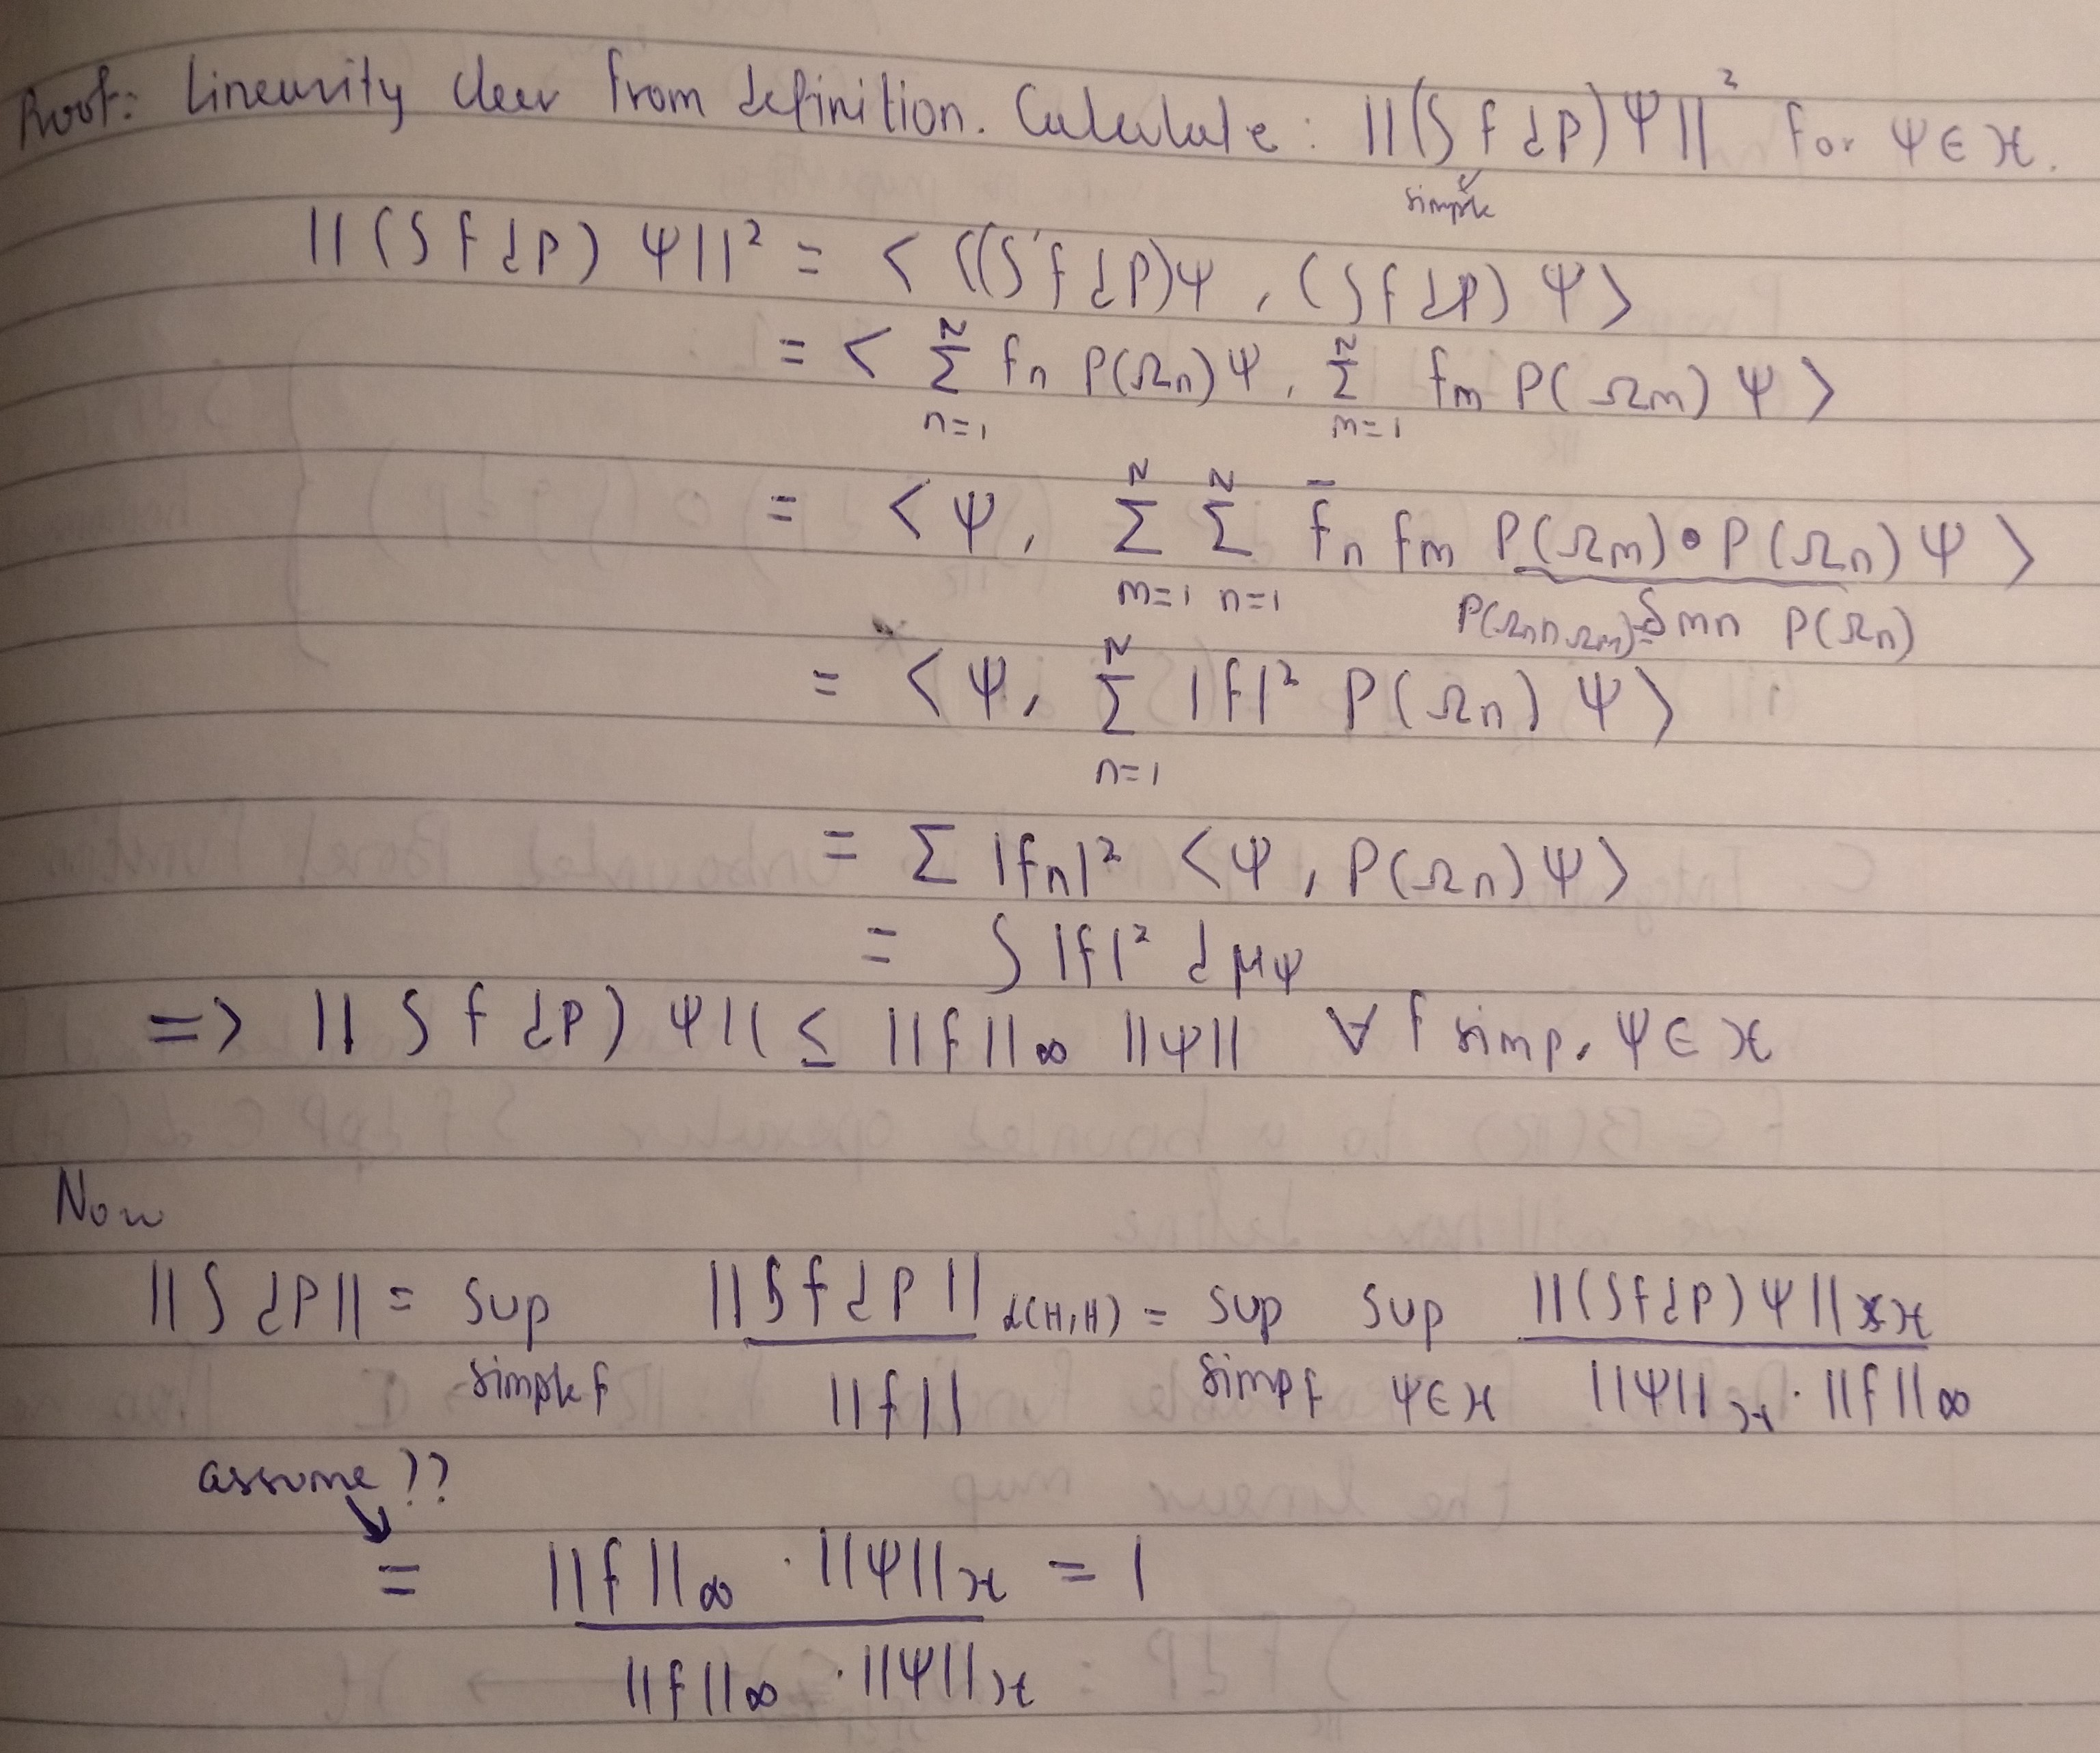 Proof: Linearity clear from definition. Calculate: ||(∫ f dP) ψ||² for ψ ∈ ℋ.
simple
||(∫ f dP) ψ||² = < ((∫ f dP)ψ, (∫ f dP) ψ>
= < Σ_{n=1}^{N} f_n P(Ω_n) ψ, Σ_{m=1}^{N} f_m P(Ω_m) ψ >
= <ψ, Σ_{m=1}^{N} Σ_{n=1}^{N} f̄_n f_m P(Ω_m) ∘ P(Ω_n) ψ >
P(Ω_n ∩ Ω_m) = δ_mn P(Ω_n)
= <ψ, Σ_{n=1}^{N} |f|² P(Ω_n) ψ>
= Σ |f_n|² <ψ, P(Ω_n) ψ>
= ∫ |f|² dμ_ψ
=> || ∫ f dP) ψ|| ≤ ||f||_∞ ||ψ|| ∀ f simp, ψ ∈ ℋ
Now
||∫ dP|| = sup_{simple f} ||∫ f dP||_{ℒ(H,H)} / ||f|| = sup_{simp f} sup_{ψ∈ℋ} ||(∫ f dP) ψ||_ℋ / ||ψ||_ℋ · ||f||_∞
assume ??
= ||f||_∞ · ||ψ||_ℋ / ||f||_∞ · ||ψ||_ℋ = 1